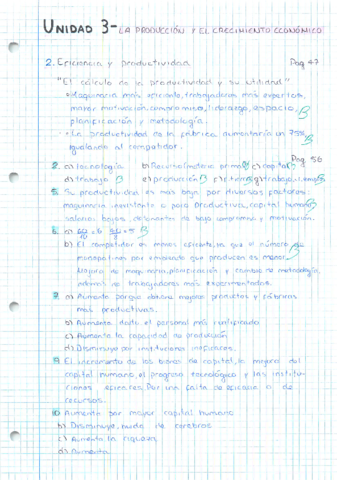 UNIDAD 3- LA PRODUCCIÓN Y EL CRECIMIENTO ECONÓMICO
2. Eficiencia y productividad Pag 47
"El cálculo de la productividad y su utilidad"
• Maquinaria más eficiente, trabajadores más expertos,
mayor motivación, compromiso, liderazgo, espacio,
planificación y metodología. B
• La productividad de la fábrica aumentaría un 75%
igualando al competidor. B
Pag 56
2. a) tecnología b) Recurso (materia prima) B c) capital B
d) trabajo B e) producción B f) tierra g) trabajo B
5. Su productividad es más baja por diversos factores:
maquinaria inexistente o poco productiva, capital humano B
salarios bajos, descontentos de bajo compromiso y motivación.
6. a) = 6 = 5 B
b) El competidor es menos eficiente, ya que el número de
monopatines por empleado que producen es menor. B
Mejora de maquinaria, planificación y cambio de metodología,
además de trabajadores más experimentados.
7. a) Aumenta porque obtiene mejores productos y fábricas
más productivas.
b) Aumenta, dado el personal más cualificado
c) Aumenta la capacidad de producción
d) Disminuye por instituciones ineficaces.
9. El incremento de los bienes de capital, la mejora del
capital humano, el progreso tecnológico y las institu-
ciones eficaces. Por una falta de eficacia o de
recursos.
10. Aumenta por mayor capital humano
b) Disminuye, huida de cerebros
c) Aumenta la riqueza,
d) Aumenta